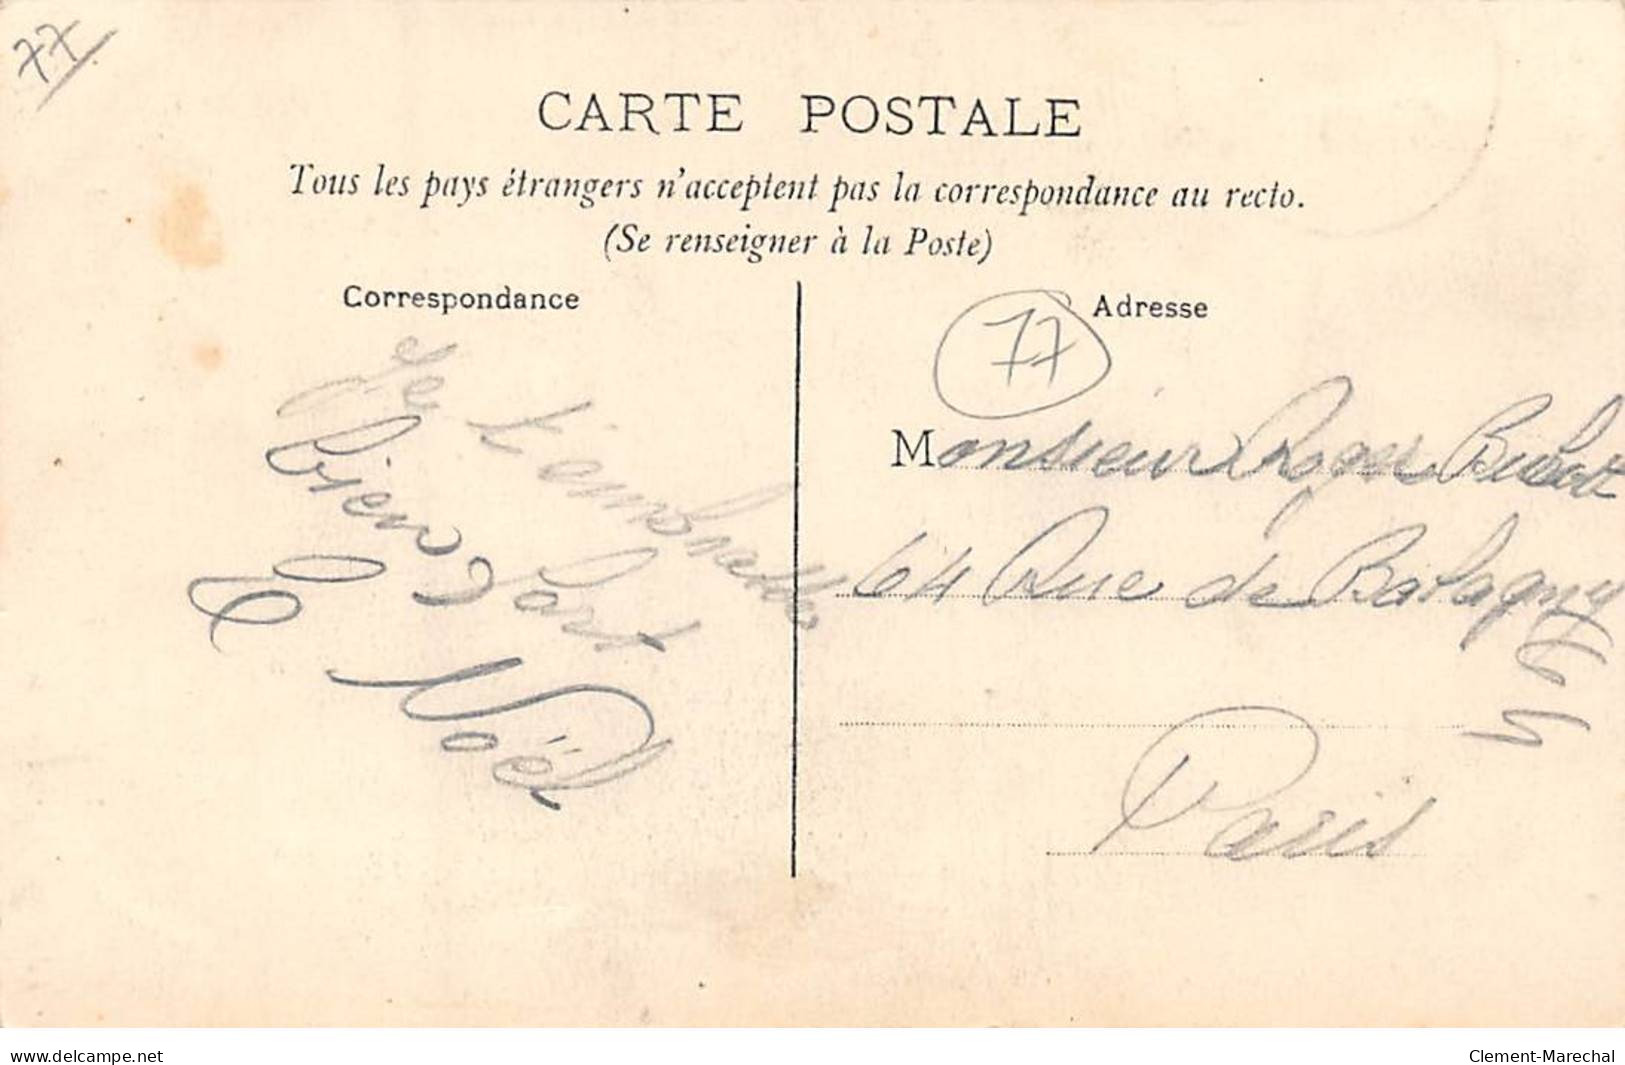 77
CARTE POSTALE
Tous les pays étrangers n'acceptent pas la correspondance au recto.
(Se renseigner à la Poste)
Correspondance
Je t'embrasse
bien fort
E Noël
77
Adresse
Monsieur Roger
64 Rue de Balagny
Paris
www.delcampe.net
Clement-Marechal